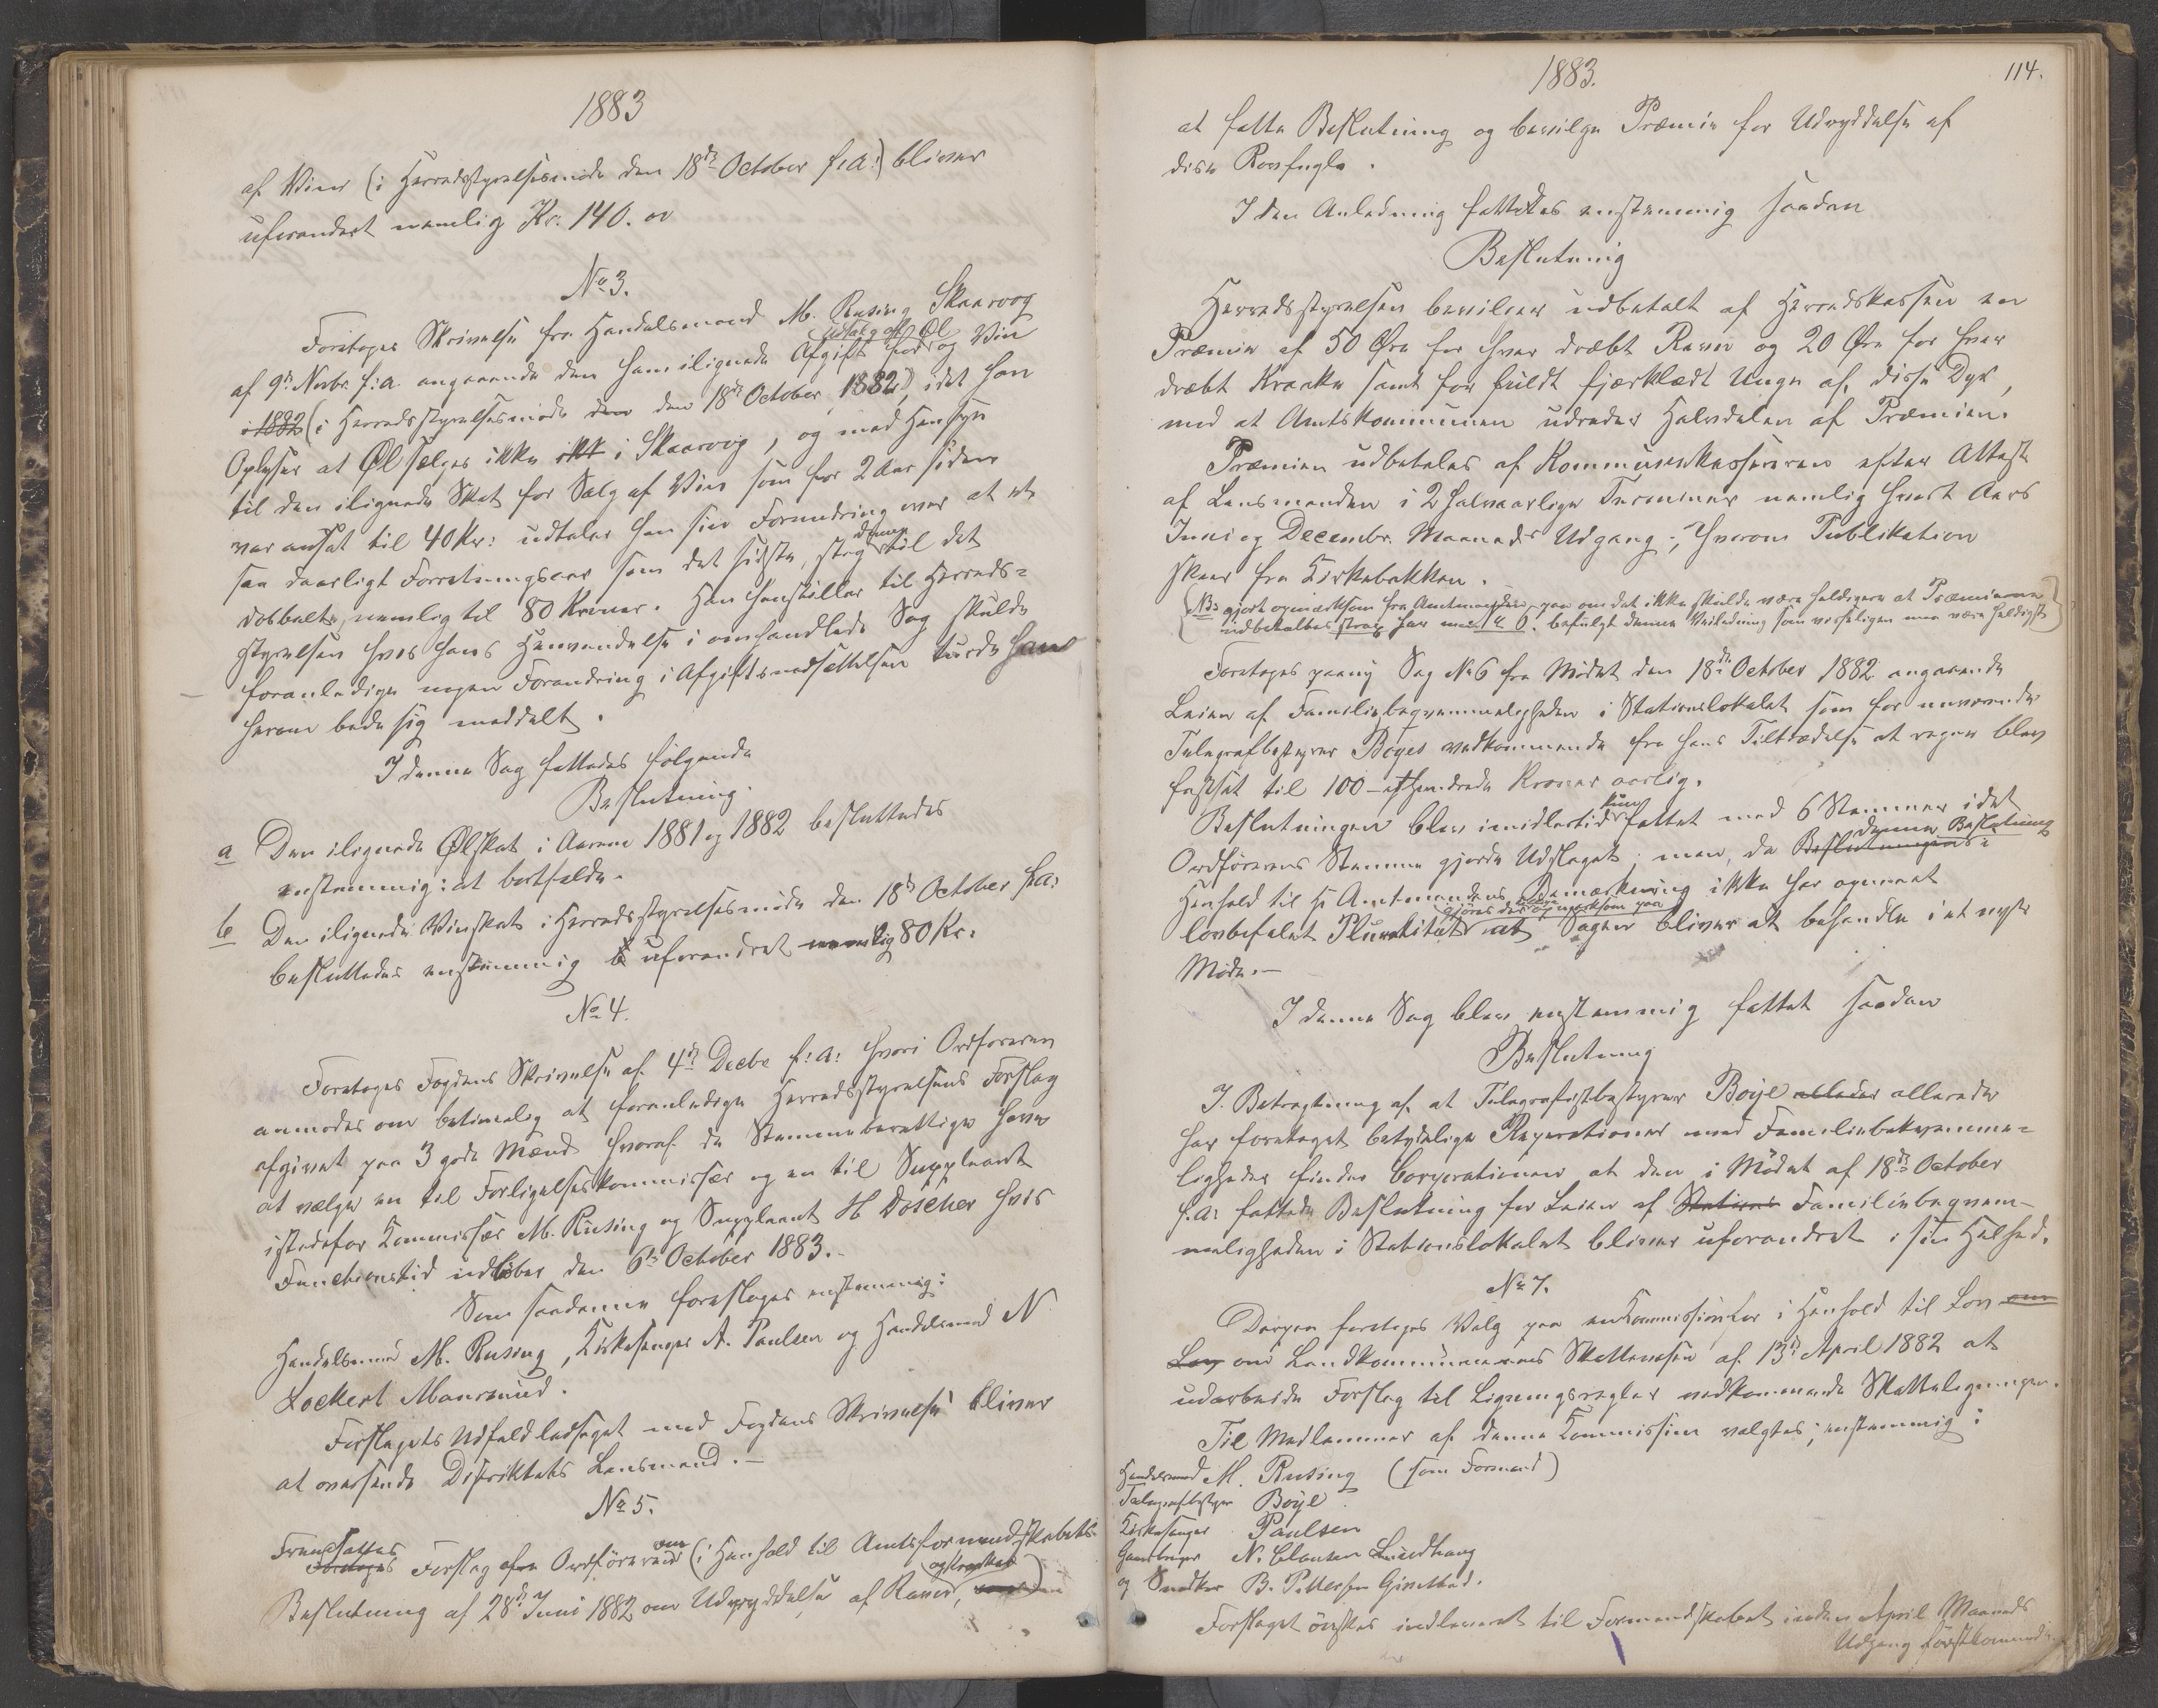 1883
af Viin (i Herredsstyrelsesmøde den 18de October f:a:) bliver
uforandert nemlig Kr. 140. oo
No 3.
Foretoges Skrivelse fra Handelsmand M. Rusing Skaarvog
Udsalg af Øl
af 9de Novbr. f:a. angaaende den ham ilignede Afgift for og Viin
i 1882 (i Herredsstyrelsesmøde den den 18de October 1882), idet han
Oplyser at Øl sælges ikke ikke i Skaarvog, og med Hensyn
til den ilignede Skat for Salg af Viin som for 2 Aar siden
var ansat til 40 Kr: udtaler han sin Forundring over at et
saa daarligt Forretningsaar som det sidste, steg denne til det
dobbelte, nemlig til 80 Kroner. Han henstiller til Herreds-
styrelsen hvis hans Henvendelse i omhandlede Sag skulde
foranledige nogen Forandring i Afgiftsnedsettelsen turde han
herom bede sig meddelt.
I denne Sag fattedes følgende
Beslutning.
a Den ilignede Ølskat i Aarene 1881 og 1882 besluttedes
enstemmig: at bortfalde.
b Den ilignede Viinskat i Herredsstyrelsesmøde den 18de October f.a:
besluttedes enstemmig uforandret nemlig 80 Kr.
No 4.
Foretoges Fogdens Skrivelse af 4de Decbr f:a: hvori Ordføreren
anmodes om betimelig at foranledige Herredsstyrelsens Forslag
afgivet paa 3 gode Mænd hvoraf de Stemmeberettige haver
at vælge en til Forligelseskommissær og en til Suppleant
istedetfor Kommissær M. Rusing og Suppleant H Döscher hvis
Functionstid udløber den 6te October 1883.
Som saadanne foresloges enstemmig:
Handelsmand M. Rusing, Kirkesanger A. Paulsen og Handelsmand N
Lockert Mansund.
Forslagets Udfald ledsaget med Fogdens Skrivelse bliver
at oversende Distriktets Lensmand.
No 5.
Fremsattes
Foretoges Forslag fra Ordføreren om (i Henhold til Amtsformandskabets
og Kraaker
Beslutning af 28de Juni 1882 om Udryddelse af Ravne,
1883.
114.
at fatte Beslutning og bevilge Præmie for Udryddelse af
disse Rovfugle.
I den Anledning fattedes enstemmig saadan
Beslutning
Herredsstyrelsen bevilger udbetalt af Herredskassen en
Præmie af 50 Øre for hver dræbt Ravn og 20 Øre for hver
dræbt Kraake samt for fuldt fjærklædt Unge af disse Dyr,
med at Amtskommunen udreder Halvdelen af Præmien.
Præmien udbetales af Kommunekassereren efter Attest
af Lensmanden i 2 halvaarlige Terminer nemlig hvert Aars
Juni og Decembr. Maaneds Udgang; hvorom Publikation
skeer fra Kirkebakken.
NB: gjort opmærksom fra Amtmanden paa om det ikke skulde være heldigere at Præmierne
udbetaltes strax har man befulgt denne Veiledning som visseligen maa være heldigst
Foretoges paany Sag No 6 fra Mødet den 18de October 1882 angaaende
Leien af Familiebeqvemmeligheden i Stationslokalet som for nuværende
Telegrafbestyrer Böyes vedkommende fra hans Tiltrædelse at regne blev
fastsat til 100 – ethundrede Kroner aarlig.
Beslutningen blev imidlertid kun fattet med 6 Stemmer idet
Ordførerens Stemme gjorde Udslaget; men, da denne Beslutning
Henhold til Hr Amtmandens Bemærkning ikke har opnaaet
gjøres der opmærksom paa
lovbefalet Pluralitet at Sagen bliver at behandle i et nyt
Møde.—
I denne Sag blev enstemmig fattet saadan
Beslutning
I Betragtning af, at Telegrafbestyrer Boye allerede
har foretaget betydelige Reparationer med Familiebekvemme-
ligheder finder Corporationen at den i Mødet af 18de October
f.a: fattede Beslutning for Leien af Stations Familiebeqvem-
meligheden i Stationslokalet bliver uforandret i sin Helhed.
No 7.
Derpaa foretoges Valg paa en Kommission for i Henhold til Lov om
Lov om Landkommunernes Skattevæsen af 15de April 1882 at
udarbeide Forslag til Ligningsregler vedkommende Skatteligningen.
Til Medlemmer af denne Kommission valgtes; enstemmig:
Handelsmand M. Rusing (som Formand)
Telegrafbestyrer Boye.
Kirkesanger Paulsen
Gaardbruger N. Clausen Lundhaug
og Snedker B. Pettersen Ginestad.
Forslaget ønskes indleveret til Formandskabet inden April Maaneds
Udgang førstkommende